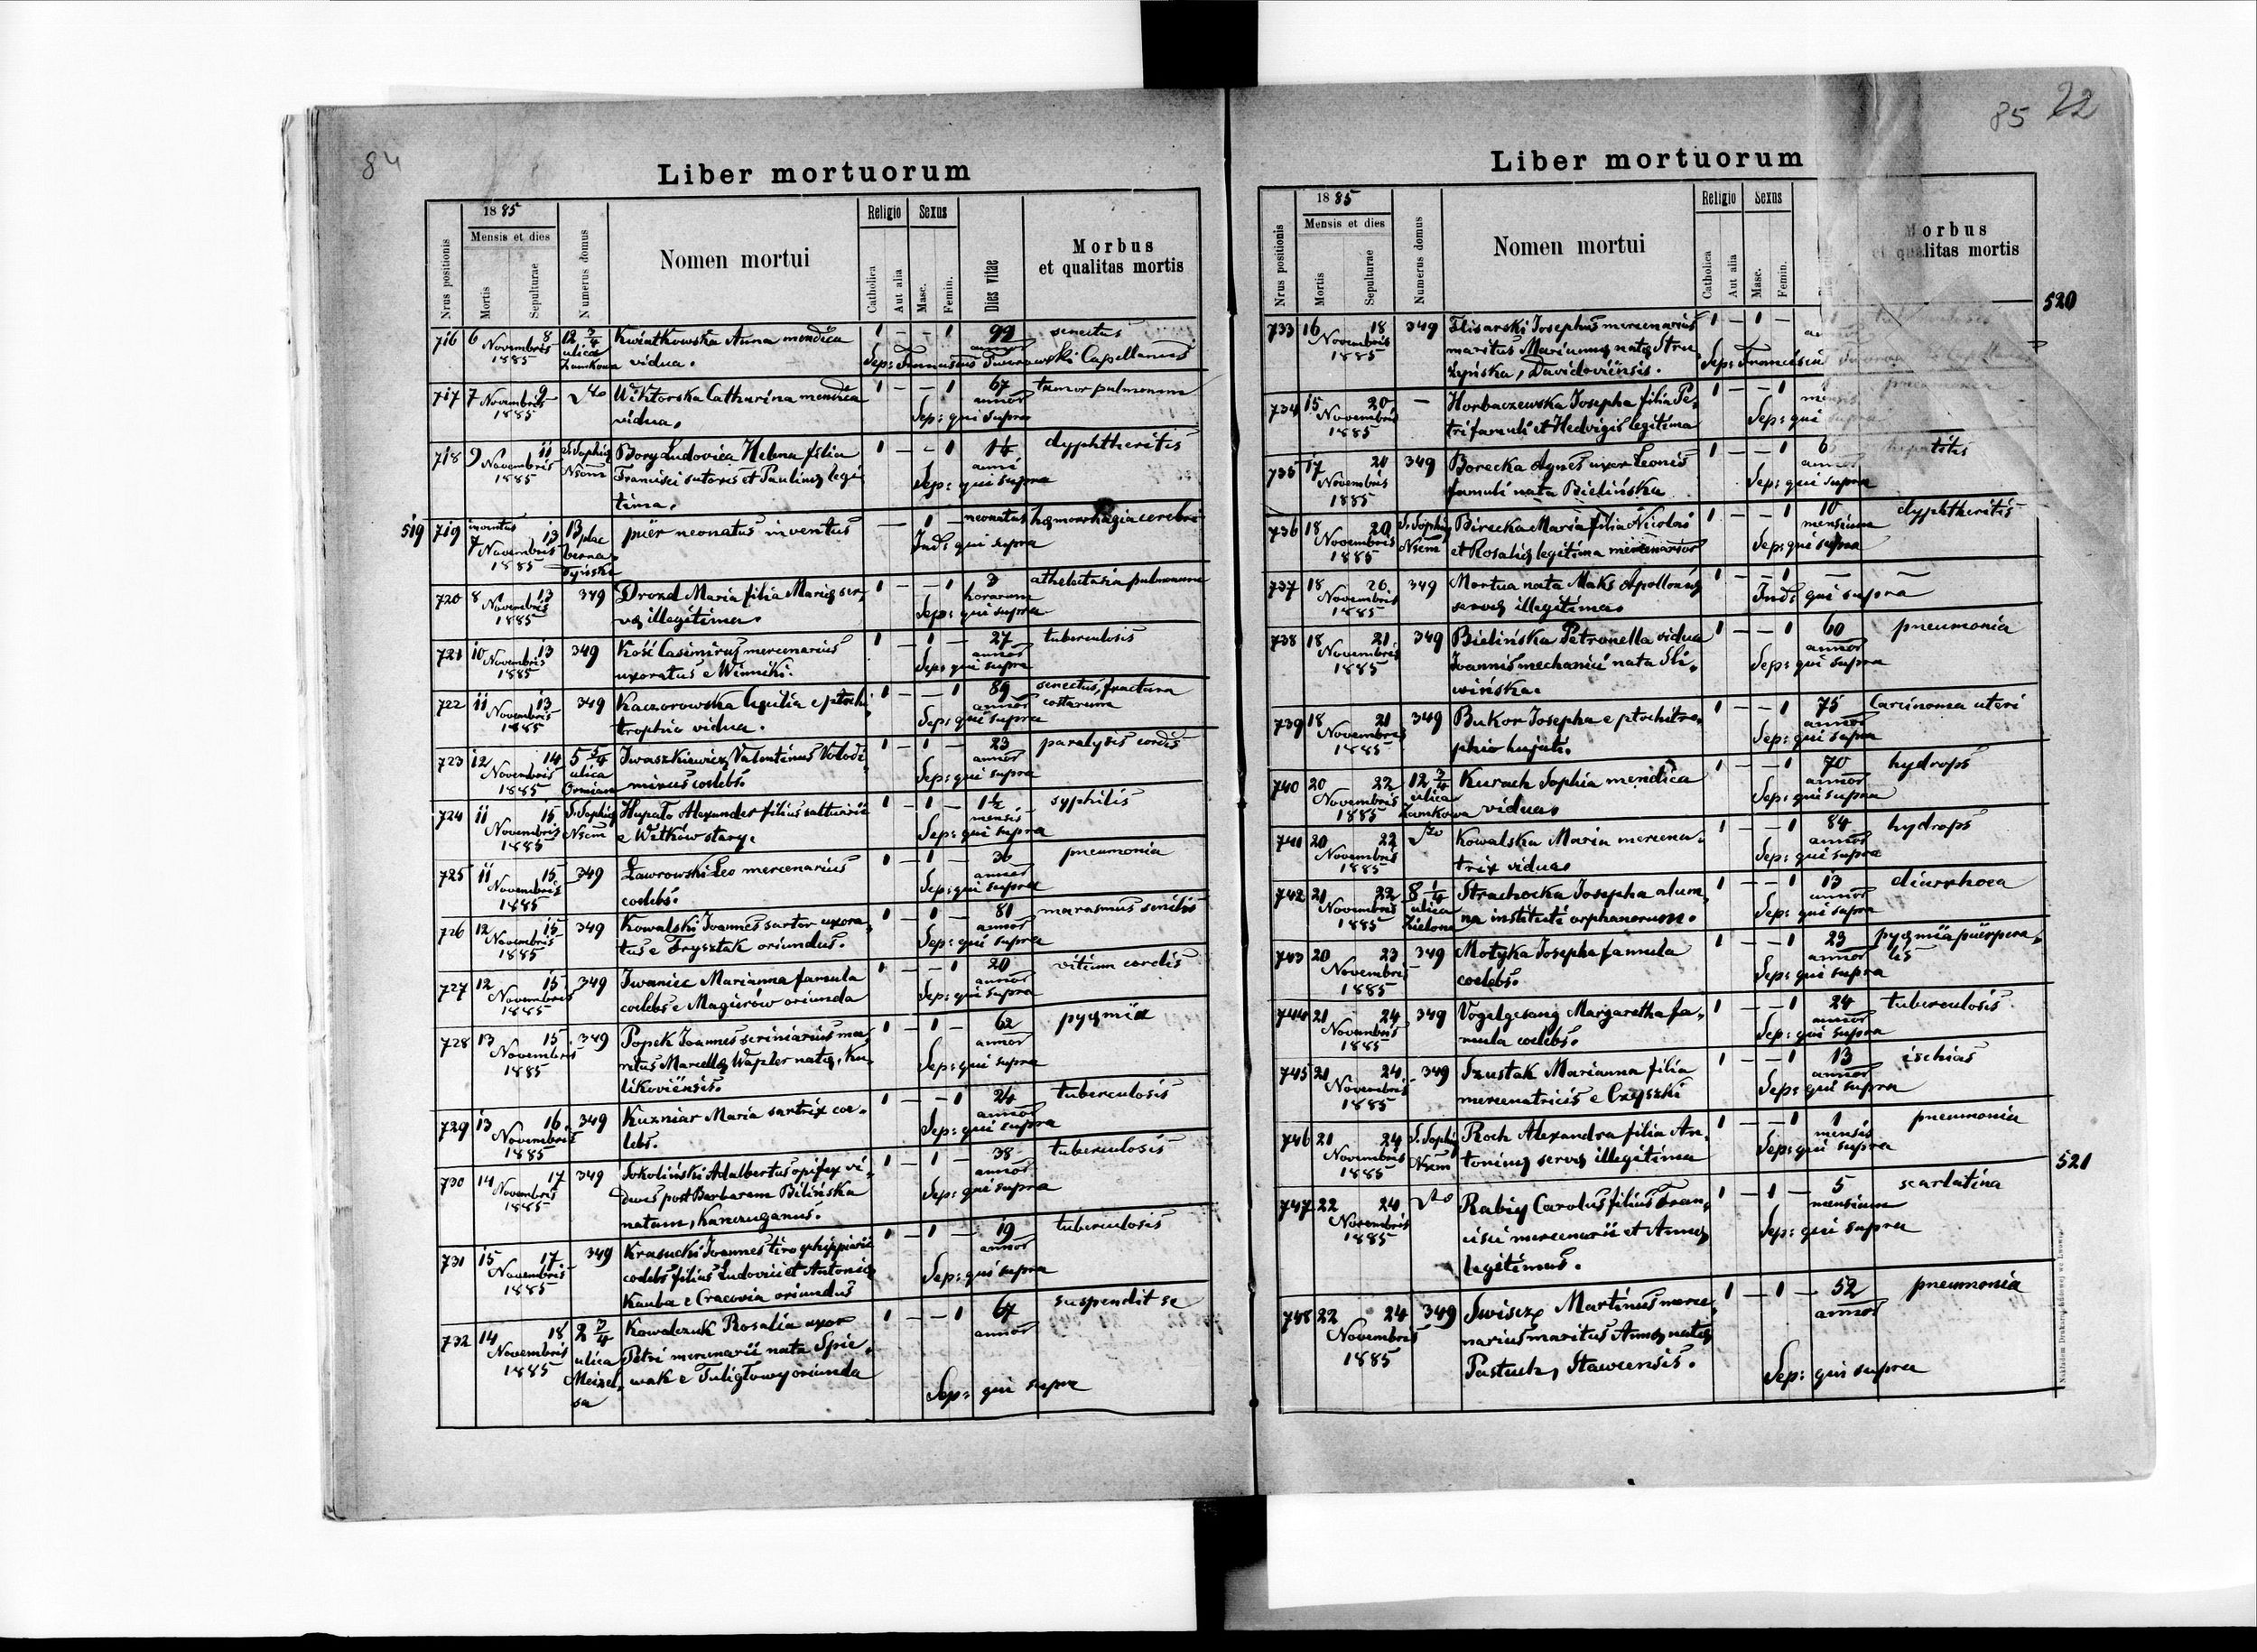 84
Liber mortuorum
Nrus positionis
1885
Mensis et dies
Mortis
Sepulturae
Numerus domus
Nomen mortui
Religio
Catholica
Aut alia
Sexus
Masc.
Femin.
Dies vitae
Morbus
et qualitas mortis
716 6 Novembris 8 1885 12 3/4 ulica Zamkowa Kwiatkowska Anna mendica 1 – – 1 99 annor senectus
vidua. Sep: Franciscus Twarowski Capellanus
717 7 Novembris 9 1885 dto Wiktorska Catharina mendica 1 – – 1 67 annor tumor pulmonum
vidua. Sep: qui supra
718 9 Novembris 11 1885 S. Sophia Nsom Bory Ludovica Helena filia 1 – – 1 1 1/4 anni dyphtheritis
Francisci sutoris et Paulinę legi
tima. Sep: qui supra
519
719 inventus 7 Novembris 13 1885 13 plac bernardyński puer neonatus inventus – 1 – neonatus hęmorrhagia cerebri
Ind: qui supra
720 8 Novembris 13 1885 349 Drozd Maria filia Marię ser,
vę illegitima. 1 – – 1 horarum athelectasia pulmonum
Sep: qui supra
721 10 Novembris 13 1885 349 Kość Casimirus mercenarius 1 – 1 – 27 annor tuberculosis
uxoratus e Winniki. Sep: qui supra
722 11 Novembris 13 1885 349 Kaczorowska Cęcilia e ptochi, 1 – – 1 89 annor senectus, fractura
trophio vidua. Sep: qui supra costarum
723 12 Novembris 14 1885 5 3/4 ulica Ormian Iwaszkiewicz Valentinus Volodi 1 – 1 – 23 annor paralysis cordis
mirus coelebs. Sep: qui supra
724 11 Novembris 15 1885 S. Sophię Nsom Hupało Alexander filius saltuarii 1 – 1 – 1 1/2 mensis syphilis
e Witków stary. Sep: qui supra
725 11 Novembris 15 1885 349 Ławrowski Leo mercenarius 1 – 1 – 36 annor pneumonia
coelebs. Sep: qui supra
726 12 Novembris 15 1885 349 Kowalski Joannes sartor uxora, 1 – 1 – 81 annor marasmus senilis
tus e Frysztak oriundus. Sep: qui supra
727 12 Novembris 15 1885 349 Iwaniec Marianna famula 1 – – 1 20 annor vitium cordis
coelebs e Magierów oriunda Sep: qui supra
728 13 Novembris 15 1885 349 Popek Joannes scriniarius ma, 1 – 1 – 62 annor pyęmia
ritus Marcellę Wapler natę, Ku,
likoviensis. Sep: qui supra
729 13 Novembris 16 1885 349 Kuzniar Maria sartrix coe, 1 – – 1 24 annor tuberculosis
lebs. Sep: qui supra
730 14 Novembris 17 1885 349 Sokoliński Adalbertus opifex vi, 1 – 1 – 38 annor tuberculosis
duus post Barbaram Bilińska
natam, Kanczuganus. Sep: qui supra
731 15 Novembris 17 1885 349 Krasucki Joannes tiro ephippiarii 1 – 1 – 19 annor tuberculosis
coelebs filius Ludovici et Antonię
Kauba e Cracovia oriundus Sep: qui supra
732 14 Novembris 18 1885 2 3/4 ulica Meizelsa Kowalczuk Rosalia uxor 1 – – 1 67 annor suspendit se
Petri mercenarii nata Spie,
wak e Tuligłowy oriunda Sep: qui supra
85 22
Liber mortuorum
Nrus positionis
1885
Mensis et dies
Mortis
Sepulturae
Numerus domus
Nomen mortui
Religio
Catholica
Aut alia
Sexus
Masc.
Femin.
Morbus
et qualitas mortis
520
733 16 Novembris 18 1885 349 Flisarski Josephus mercenarius 1 – 1 –
maritus Mariannę natę Stru
żyńska, Davidoviensis. Sep: Franciscus
734 15 Novembris 20 1885 – Horbaczewska Josepha filia Pe, 1 – – 1 mensis pneumonia
tri famuli et Hedvigis legitima Sep: qui supra
735 17 Novembris 21 1885 349 Borecka Agnes uxor Leonis 1 – – 1 hepatitis
famuli nata Bielińska Sep: qui supra
736 18 Novembris 20 1885 S. Sophię Nsom Birecka Maria filia Nicolai 1 – – 1 10 mensium dyphtheritis
et Rosalię legitima mercenarior Sep: qui supra
737 18 Novembris 26 1885 349 Mortua nata Maks Apollonię 1 – – 1 – –
servę illegitima. Ind: qui supra
738 18 Novembris 21 1885 349 Bielińska Petronella vidua 1 – – 1 60 annor pneumonia
Joannis mechanici nata Śli,
wińska. Sep: qui supra
739 18 Novembris 21 1885 349 Bukor Josepha e ptochitro, 1 – – 1 75 annor Carcinoma uteri
phio hujati. Sep: qui supra
740 20 Novembris 22 1885 12 3/4 ulica Zamkowa Kurach Sophia mendica 1 – – 1 70 annor hydrops
vidua. Sep: qui supra
741 20 Novembris 22 1885 dto Kowalska Maria mercena, 1 – – 1 84 annor hydrops
trix vidua. Sep: qui supra
742 21 Novembris 22 1885 8 1/4 ulica Zielona Strachocka Josepha alum, 1 – – 1 13 annor diarrhoea
na instituti orphanorum. Sep: qui supra
743 20 Novembris 23 1885 349 Motyka Josepha famula 1 – – 1 23 annor pyęmia puerpera,
coelebs. Sep: qui supra lis
744 21 Novembris 24 1885 349 Vogelgesang Margaretha fa, 1 – – 1 24 annor tuberculosis
mula coelebs. Sep: qui supra
745 21 Novembris 24 1885 349 Szustak Marianna filia 1 – – 1 13 annor ischias
mercenatricis e Czyszki Sep: qui supra
746 21 Novembris 24 1885 S. Sophię Nsom Roch Alexandra filia An, 1 – – 1 1 mensis pneumonia
toninę servę illegitima Sep: qui supra
521
747 22 Novembris 24 1885 dto Rabiy Carolus filius Fran, 1 – 1 – 5 mensium scarlatina
cisci mercenarii et Annę
legitimus. Sep: qui supra
748 22 Novembris 24 1885 349 Swiszcz Martinus merce, 1 – 1 – 52 annor pneumonia
narius maritus Annę natę
Pastuch, Stawcensis. Sep: qui supra